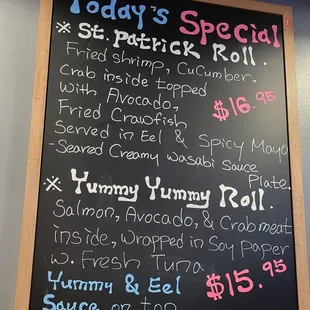 Today's Special
※ St. Patrick Roll.
Fried shrimp, Cucumber,
Crab inside topped
with Avocado,
Fried Crawfish
$16.95
Served in Eel & Spicy Mayo
-Seared Creamy Wasabi Sauce
Plate.
※ Yummy Yummy Roll.
Salmon, Avocado, & Crabmeat
inside, Wrapped in Soy Paper
w. Fresh Tuna
Yummy & Eel
$15.95
Sauce on top